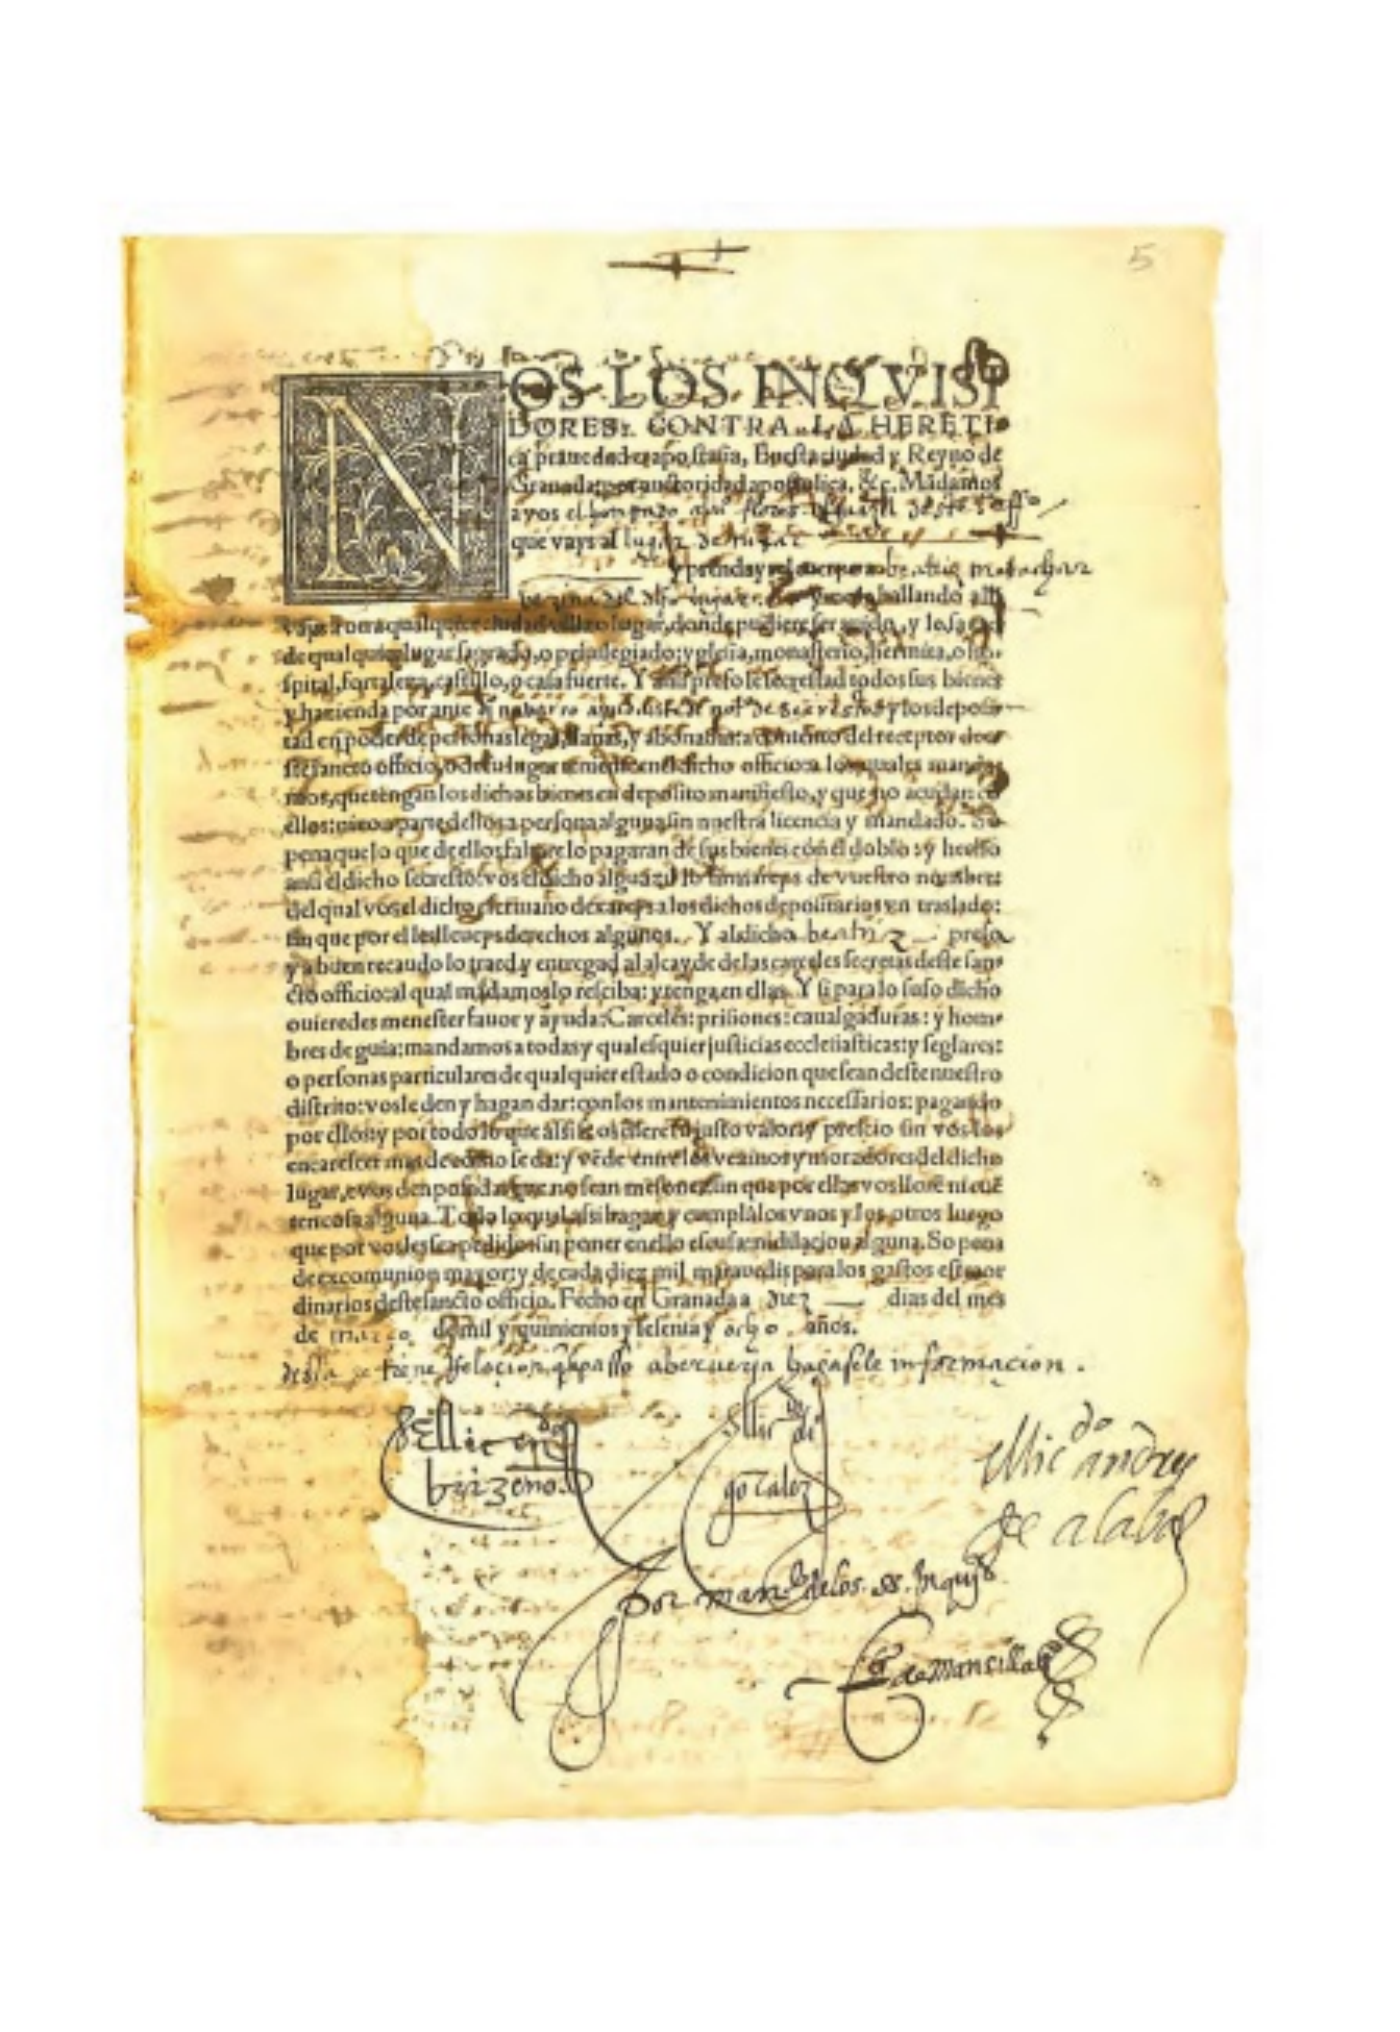 5
NOS LOS INQVISI
DORES: CONTRA LA HERETI-
ca prauedad e apostasia, En esta ciudad y Reyno de
Granada: por auctoridad apostolica. &c. Mãdamos
a vos el honrrado flores alguazil deste s. offº
que vays al lugar de
y prendays el cuerpo a beatriz
vezina del dho y no lo hallando alli
vays a otra qualquier ciudad villa o lugar, donde pudiere ser auido, y lo sacad
de qualquier lugar sagrado, o preuilegiado: yglesia, monasterio, hermita, o hos-
spital, fortaleza, castillo, o casa fuerte. Y ansi preso le secrestad todos sus bienes
y hazienda por ante navarro notº de secrestos y los deposi-
tad en poder de personas legas, llanas, y abonadas: a contento del receptor des-
te sancto officio, o de su lugar teniente en el dicho officio: a los quales manda-
mos, que tengan los dichos bienes en deposito manifiesto, y que no acudan cõ
ellos: ni con parte dellos a persona alguna sin nuestra licencia y mandado. So
pena que lo que de ellos faltare lo pagaran de sus bienes con el doblo: y hecho
ansi el dicho secresto: vos el dicho alguazil lo firmareys de vuestro nombre:
del qual vos el dicho escriuano dexareys a los dichos depositarios vn traslado:
sin que por el les lleueys derechos algunos. Y al dicho beatriz preso
y a buen recaudo lo traed y entregad al alcayde de las carceles secretas deste san-
cto officio: al qual mãdamos lo resciba: y tenga en ellas. Y si para lo suso dicho
ouieredes menester fauor y ayuda: Carceles: prisiones: caualgaduras: y hom-
bres de guia: mandamos a todas y qualesquier justicias ecclesiasticas: y seglares:
o personas particulares de qualquier estado o condicion que sean deste nuestro
distrito: vos le den y hagan dar: con los mantenimientos necessarios: pagando
por ellos: y por todo lo que assi se os diere su justo valor: y prescio sin vos los
encarescer mas de como se da: y vẽde entre los vezinos y moradores del dicho
lugar, e vos den posadas que no sean mesones: sin que por ellas vos lleuẽ ni cuẽ
ten cosa alguna. Todo lo qual assi hagan y cumplã los vnos y los otros luego
que por vos les sea pedido: sin poner en ello escusa: ni dilacion alguna. So pena
de excomunion mayor: y de cada diez mil marauedis para los gastos estraor
dinarios deste sancto officio. Fecho en Granada a diez dias del mes
de março de mil y quinientos y sesenta y ocho años.
tiene Relacion q̃ passo a berueria hagasele informacion.
El licdo
brizeño
El licdo di
gonçalez
El licdo andres
de alaba
por mandº de los ss. Inquisºs
de Mansilla